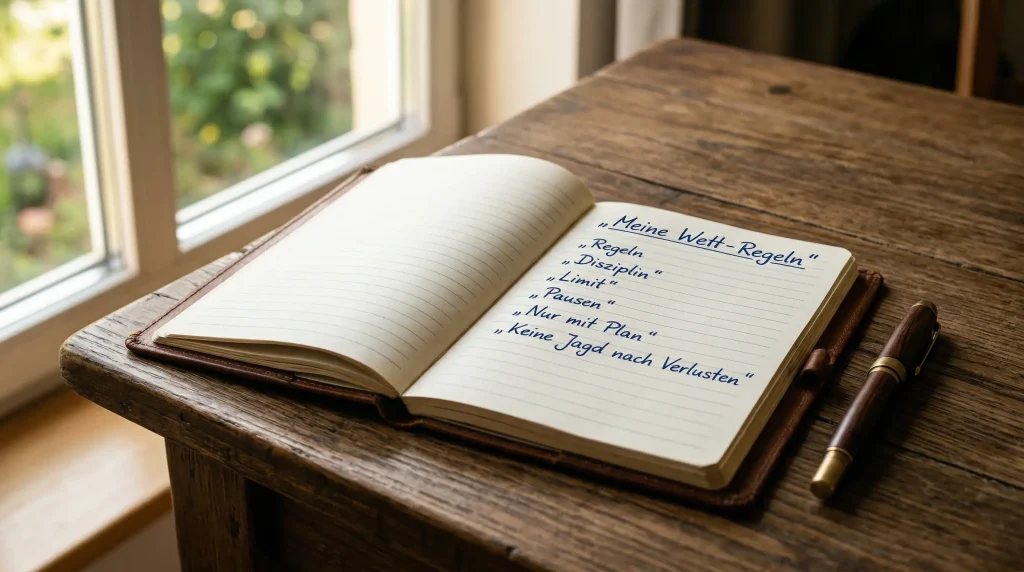 „Meine Wett-Regeln"
„Regeln
„Disziplin"
„Limit"
„Pausen"
„Nur mit Plan"
„Keine Jagd nach Verlusten"